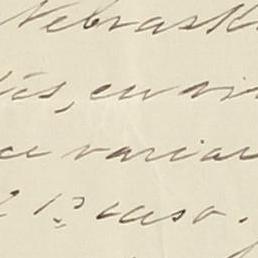 Nebrask
tes, envi
ce varia
1º caso.